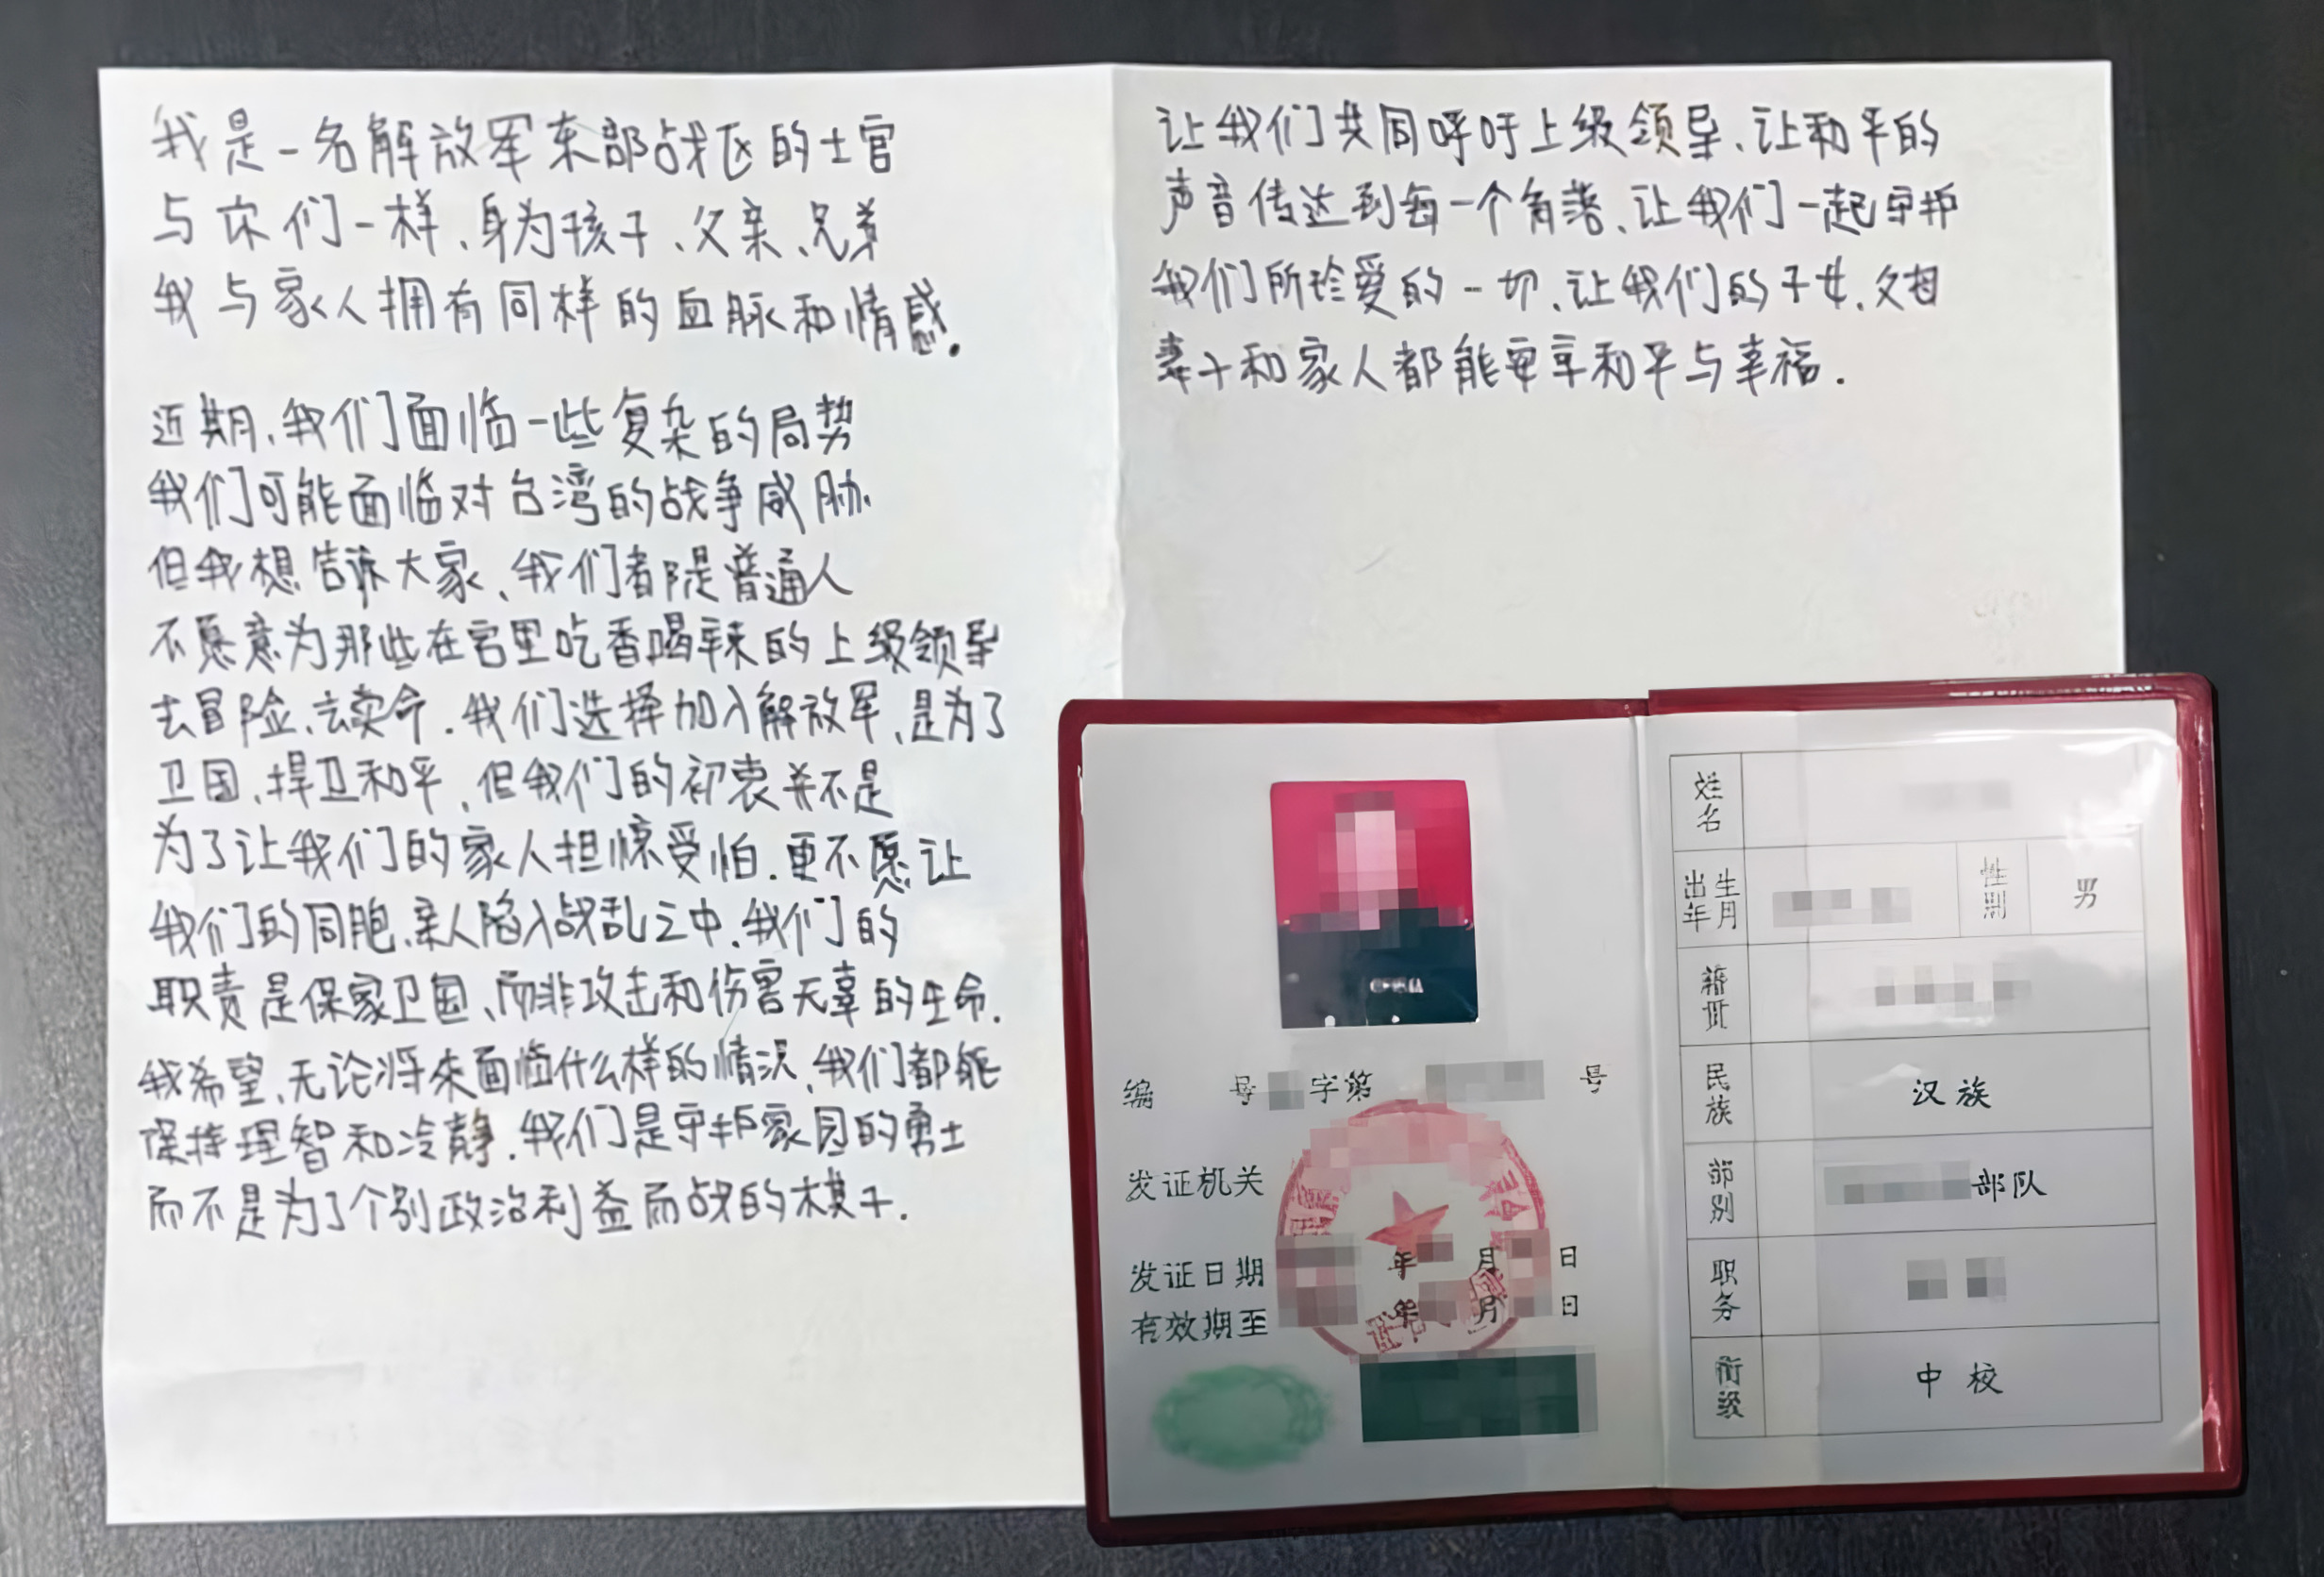 我是一名解放军东部战区的士官
与你们一样、身为孩子、父亲、兄弟
我与家人拥有同样的血脉和情感.
近期、我们面临一些复杂的局势
我们可能面临对台湾的战争威胁.
但我想告诉大家、我们都是普通人
不愿意为那些在宫里吃香喝辣的上级领导
去冒险、去卖命.我们选择加入解放军、是为了
卫国、捍卫和平,但我们的初衷并不是
为了让我们的家人担惊受怕.更不愿让
我们的同胞、亲人陷入战乱之中.我们的
职责是保家卫国、而非攻击和伤害无辜的生命.
我希望、无论将来面临什么样的情况、我们都能
保持理智和冷静.我们是守护家园的勇士
而不是为了个别政治利益而战的棋子.
让我们共同呼吁上级领导、让和平的
声音传达到每一个角落、让我们一起守护
我们所珍爱的一切、让我们的子女、父母
妻子和家人都能安享和平与幸福.
编 号 字第 号
发证机关
发证日期 年 月 日
有效期至 年 月 日
姓名
出生年月 性别 男
籍贯
民族 汉族
部别 部队
职务
衔级 中校